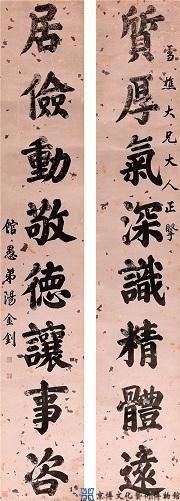 雪樵大兄大人正擘
質厚氣深識精體遠
居儉動敬德讓事咨
館愚弟湯金釗
京博文化藝術博物館